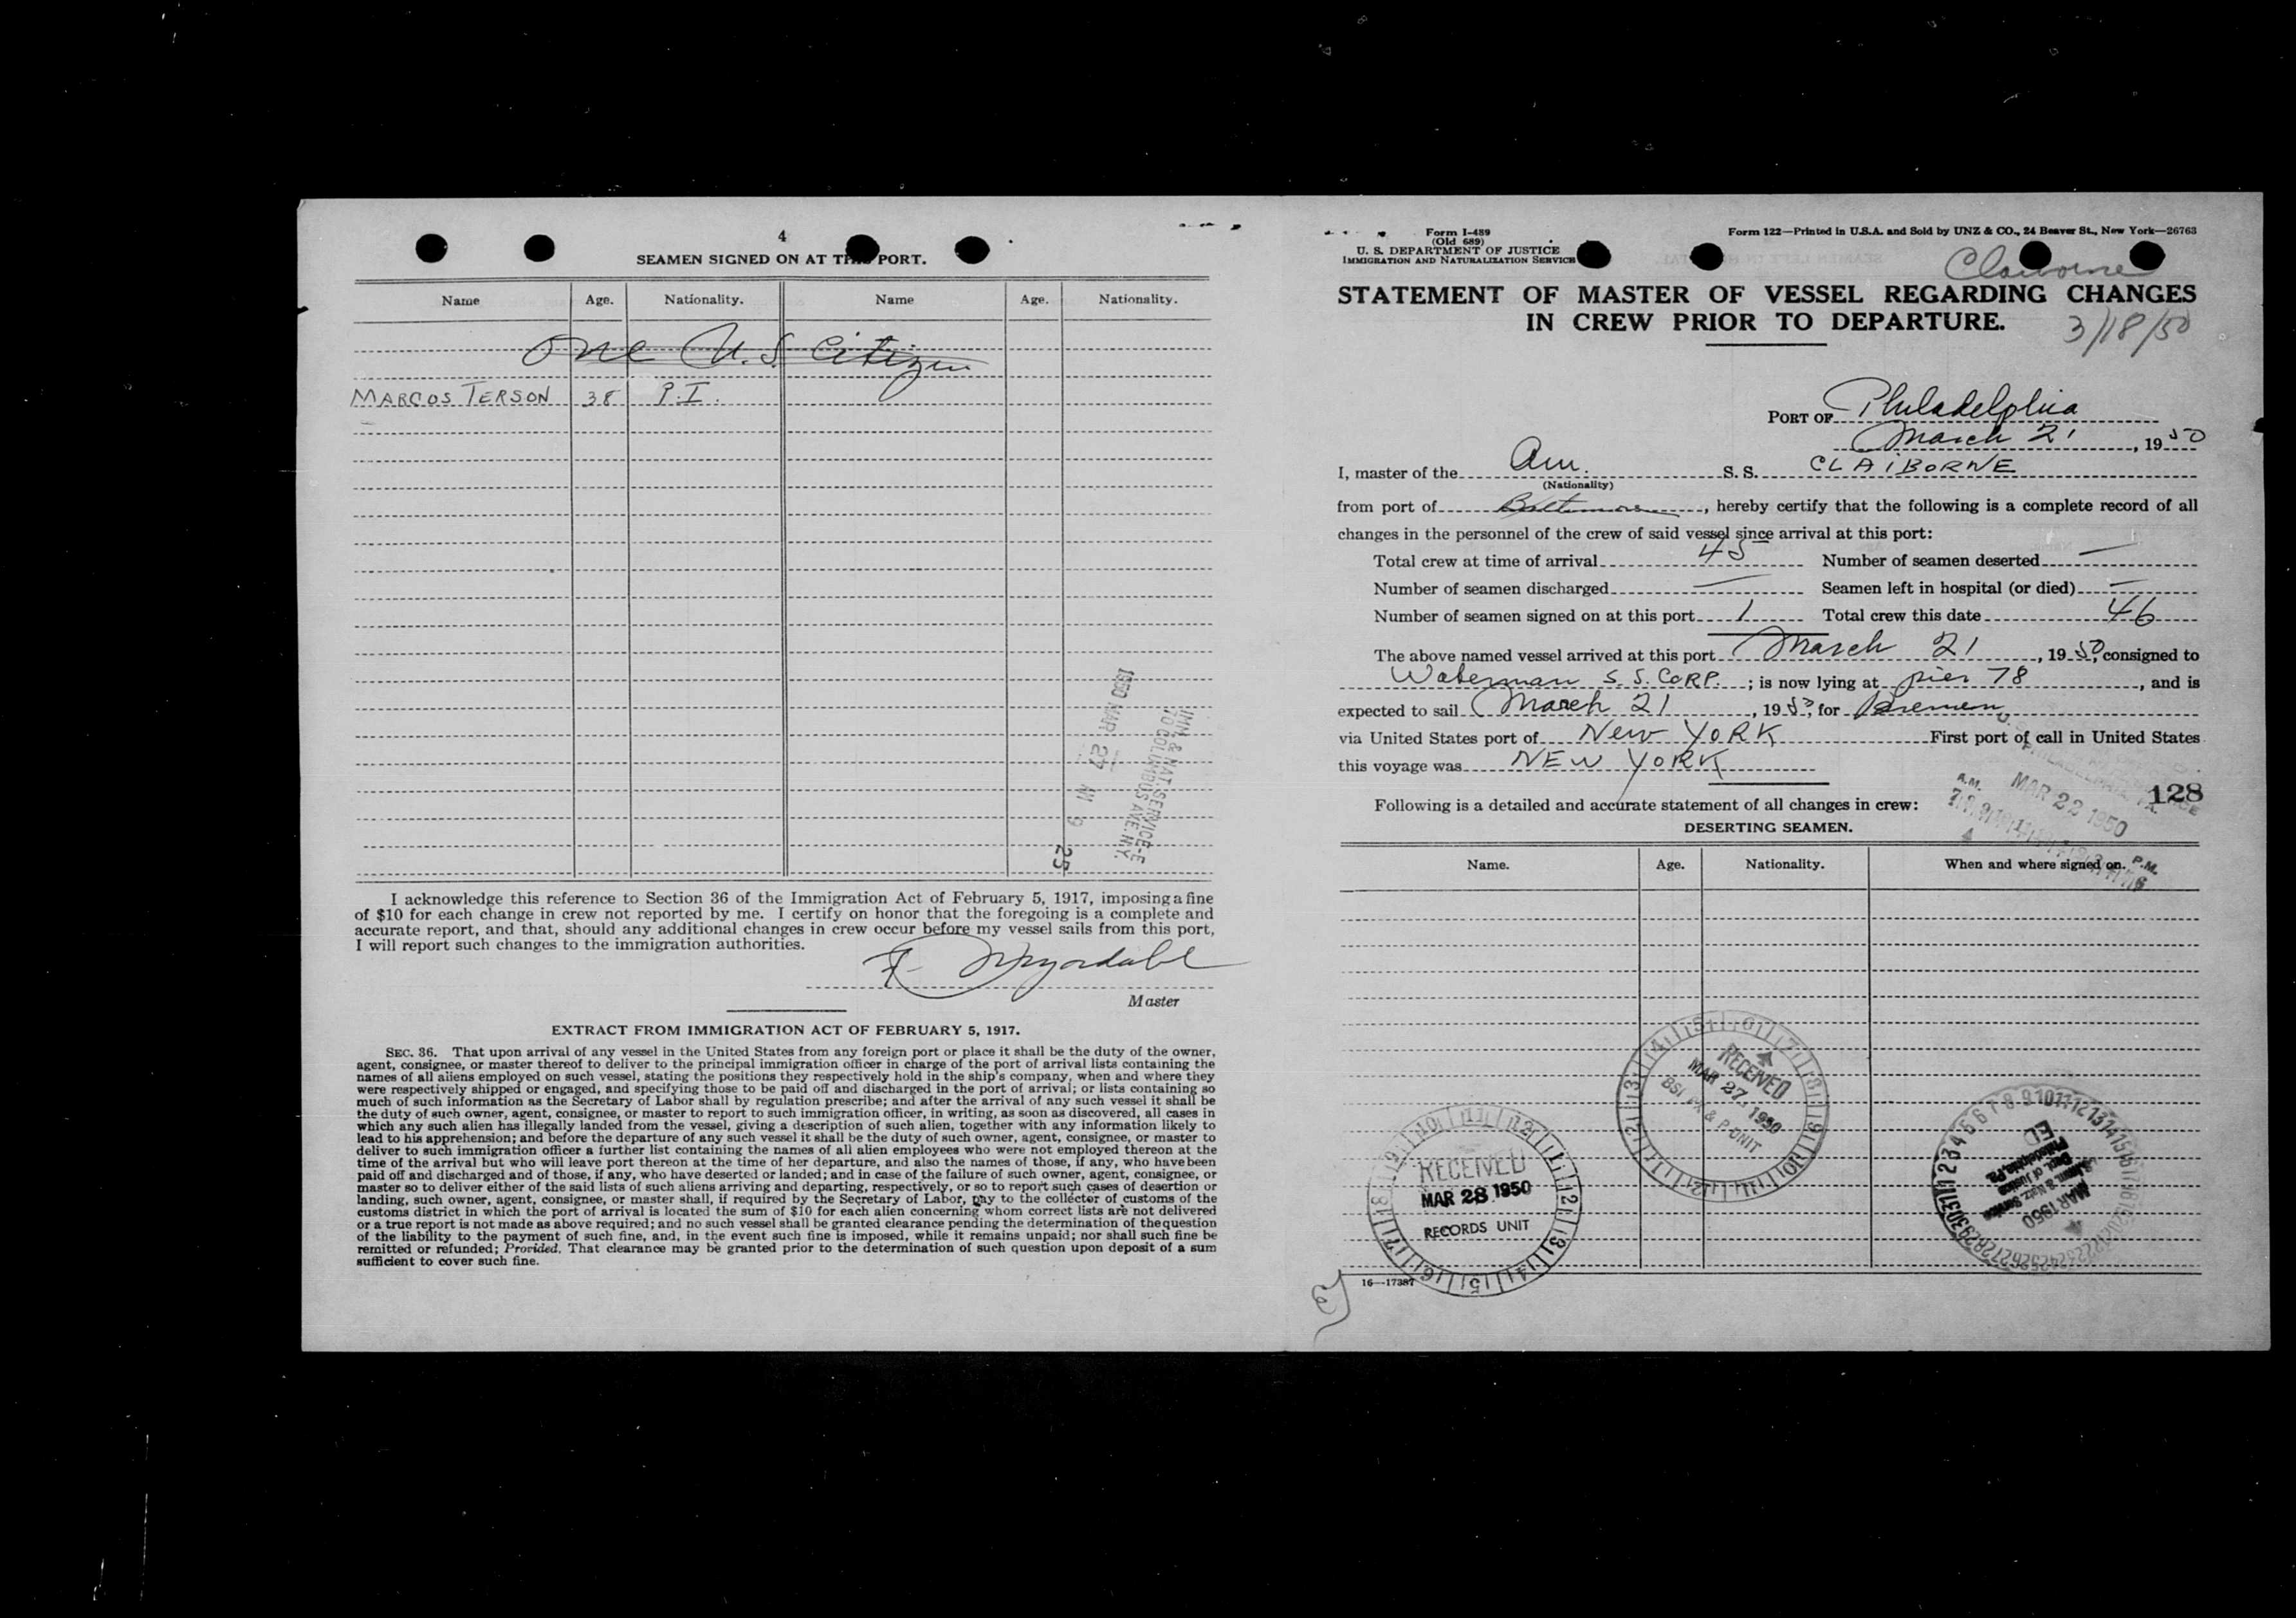 4
SEAMEN SIGNED ON AT THIS PORT.
Name Age. Nationality. Name Age. Nationality.
One U.S. Citizen
MARCOS TERSON 38 P.I.
1950 MAR 27 AM 9 25
IMM. & NAT. SERVICE-E
70 COLUMBUS AVE. N.Y.
I acknowledge this reference to Section 36 of the Immigration Act of February 5, 1917, imposing a fine
of $10 for each change in crew not reported by me. I certify on honor that the foregoing is a complete and
accurate report, and that, should any additional changes in crew occur before my vessel sails from this port,
I will report such changes to the immigration authorities.
Master
EXTRACT FROM IMMIGRATION ACT OF FEBRUARY 5, 1917.
SEC. 36. That upon arrival of any vessel in the United States from any foreign port or place it shall be the duty of the owner,
agent, consignee, or master thereof to deliver to the principal immigration officer in charge of the port of arrival lists containing the
names of all aliens employed on such vessel, stating the positions they respectively hold in the ship's company, when and where they
were respectively shipped or engaged, and specifying those to be paid off and discharged in the port of arrival; or lists containing so
much of such information as the Secretary of Labor shall by regulation prescribe; and after the arrival of any such vessel it shall be
the duty of such owner, agent, consignee, or master to report to such immigration officer, in writing, as soon as discovered, all cases in
which any such alien has illegally landed from the vessel, giving a description of such alien, together with any information likely to
lead to his apprehension; and before the departure of any such vessel it shall be the duty of such owner, agent, consignee, or master to
deliver to such immigration officer a further list containing the names of all alien employees who were not employed thereon at the
time of the arrival but who will leave port thereon at the time of her departure, and also the names of those, if any, who have been
paid off and discharged and of those, if any, who have deserted or landed; and in case of the failure of such owner, agent, consignee, or
master so to deliver either of the said lists of such aliens arriving and departing, respectively, or so to report such cases of desertion or
landing, such owner, agent, consignee, or master shall, if required by the Secretary of Labor, pay to the collector of customs of the
customs district in which the port of arrival is located the sum of $10 for each alien concerning whom correct lists are not delivered
or a true report is not made as above required; and no such vessel shall be granted clearance pending the determination of the question
of the liability to the payment of such fine, and, in the event such fine is imposed, while it remains unpaid; nor shall such fine be
remitted or refunded; Provided, That clearance may be granted prior to the determination of such question upon deposit of a sum
sufficient to cover such fine.
Form I-489
(Old 689)
U. S. DEPARTMENT OF JUSTICE
IMMIGRATION AND NATURALIZATION SERVICE
Form 122—Printed in U.S.A. and Sold by UNZ & CO., 24 Beaver St., New York—26763
Claiborne
STATEMENT OF MASTER OF VESSEL REGARDING CHANGES
IN CREW PRIOR TO DEPARTURE.
3/18/50
PORT OF Philadelphia
March 21, 1950
I, master of the Am. S. S. CLAIBORNE
(Nationality)
from port of Baltimore, hereby certify that the following is a complete record of all
changes in the personnel of the crew of said vessel since arrival at this port:
Total crew at time of arrival 45 Number of seamen deserted —
Number of seamen discharged — Seamen left in hospital (or died) —
Number of seamen signed on at this port 1 Total crew this date 46
The above named vessel arrived at this port March 21, 1950, consigned to
Waterman S. S. CORP.; is now lying at pier 78, and is
expected to sail March 21, 1950, for Bremen
via United States port of NEW YORK First port of call in United States
this voyage was NEW YORK
128
A.M. MAR 22 1950 P.M.
Following is a detailed and accurate statement of all changes in crew:
DESERTING SEAMEN.
Name. Age. Nationality. When and where signed on.
RECEIVED
MAR 27 1950
RECEIVED
MAR 28 1950
RECORDS UNIT
MAR 1950
Philadelphia, Pa.
16—17387